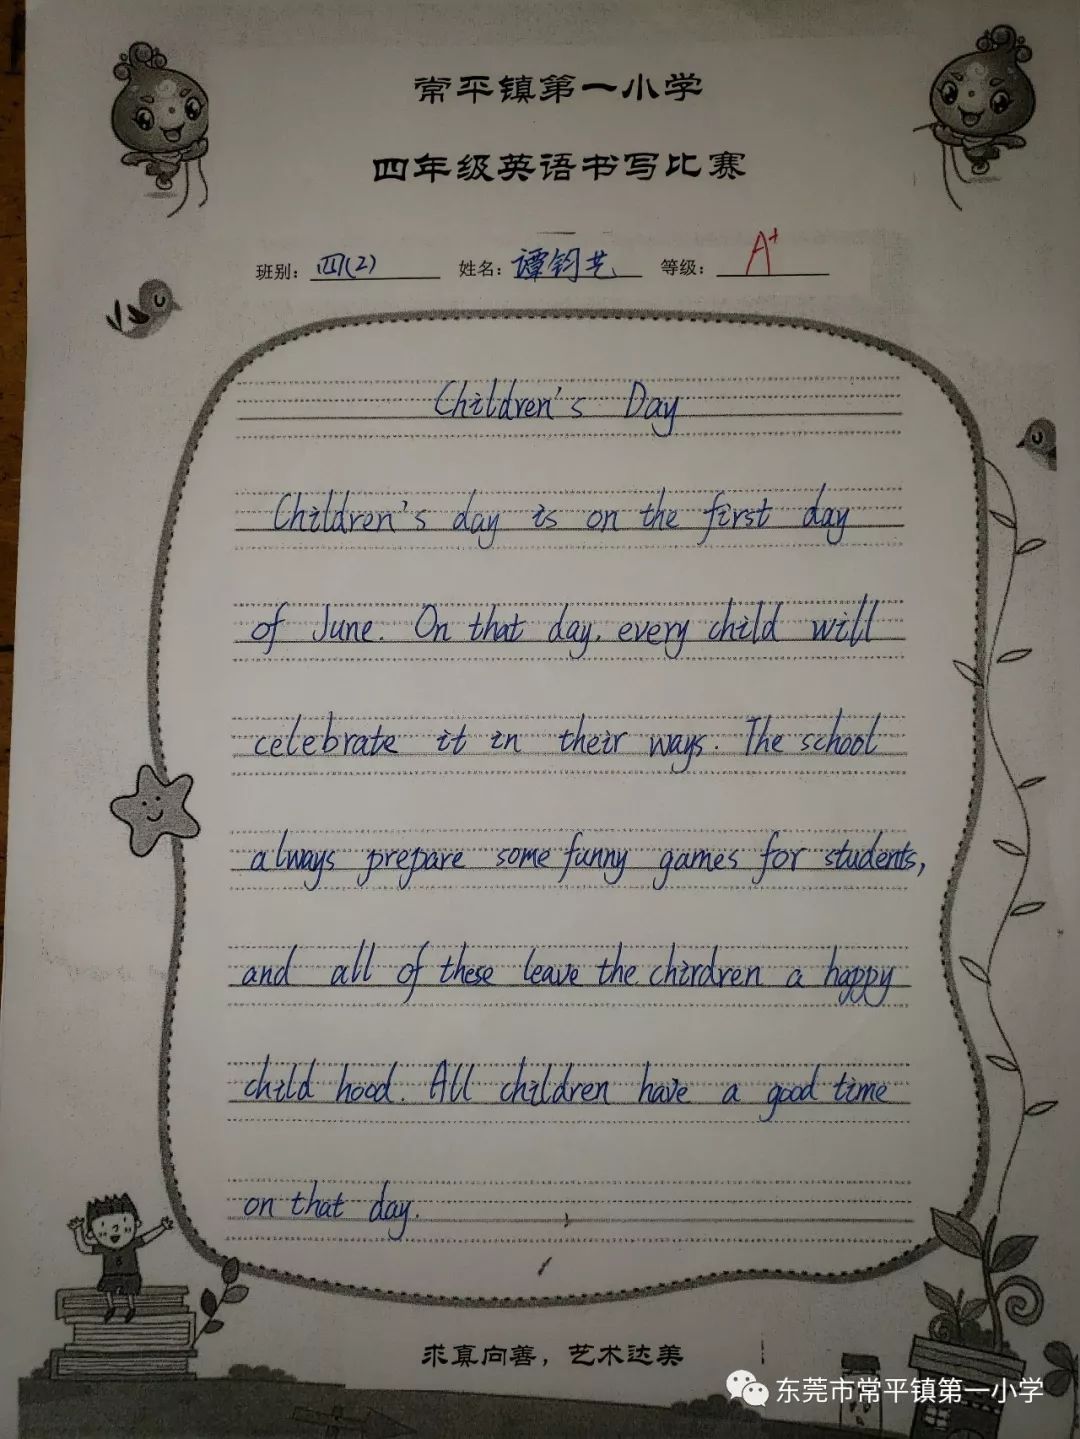 常平镇第一小学
四年级英语书写比赛
班别: 四(2) 姓名: 谭钧艺 等级: A+
Children's Day
Children's day is on the first day
of June. On that day, every child will
celebrate it in their ways. The school
always prepare some funny games for students,
and all of these leave the chirdren a happy
child hood. All children have a good time
on that day.
求真向善，艺术达美
东莞市常平镇第一小学